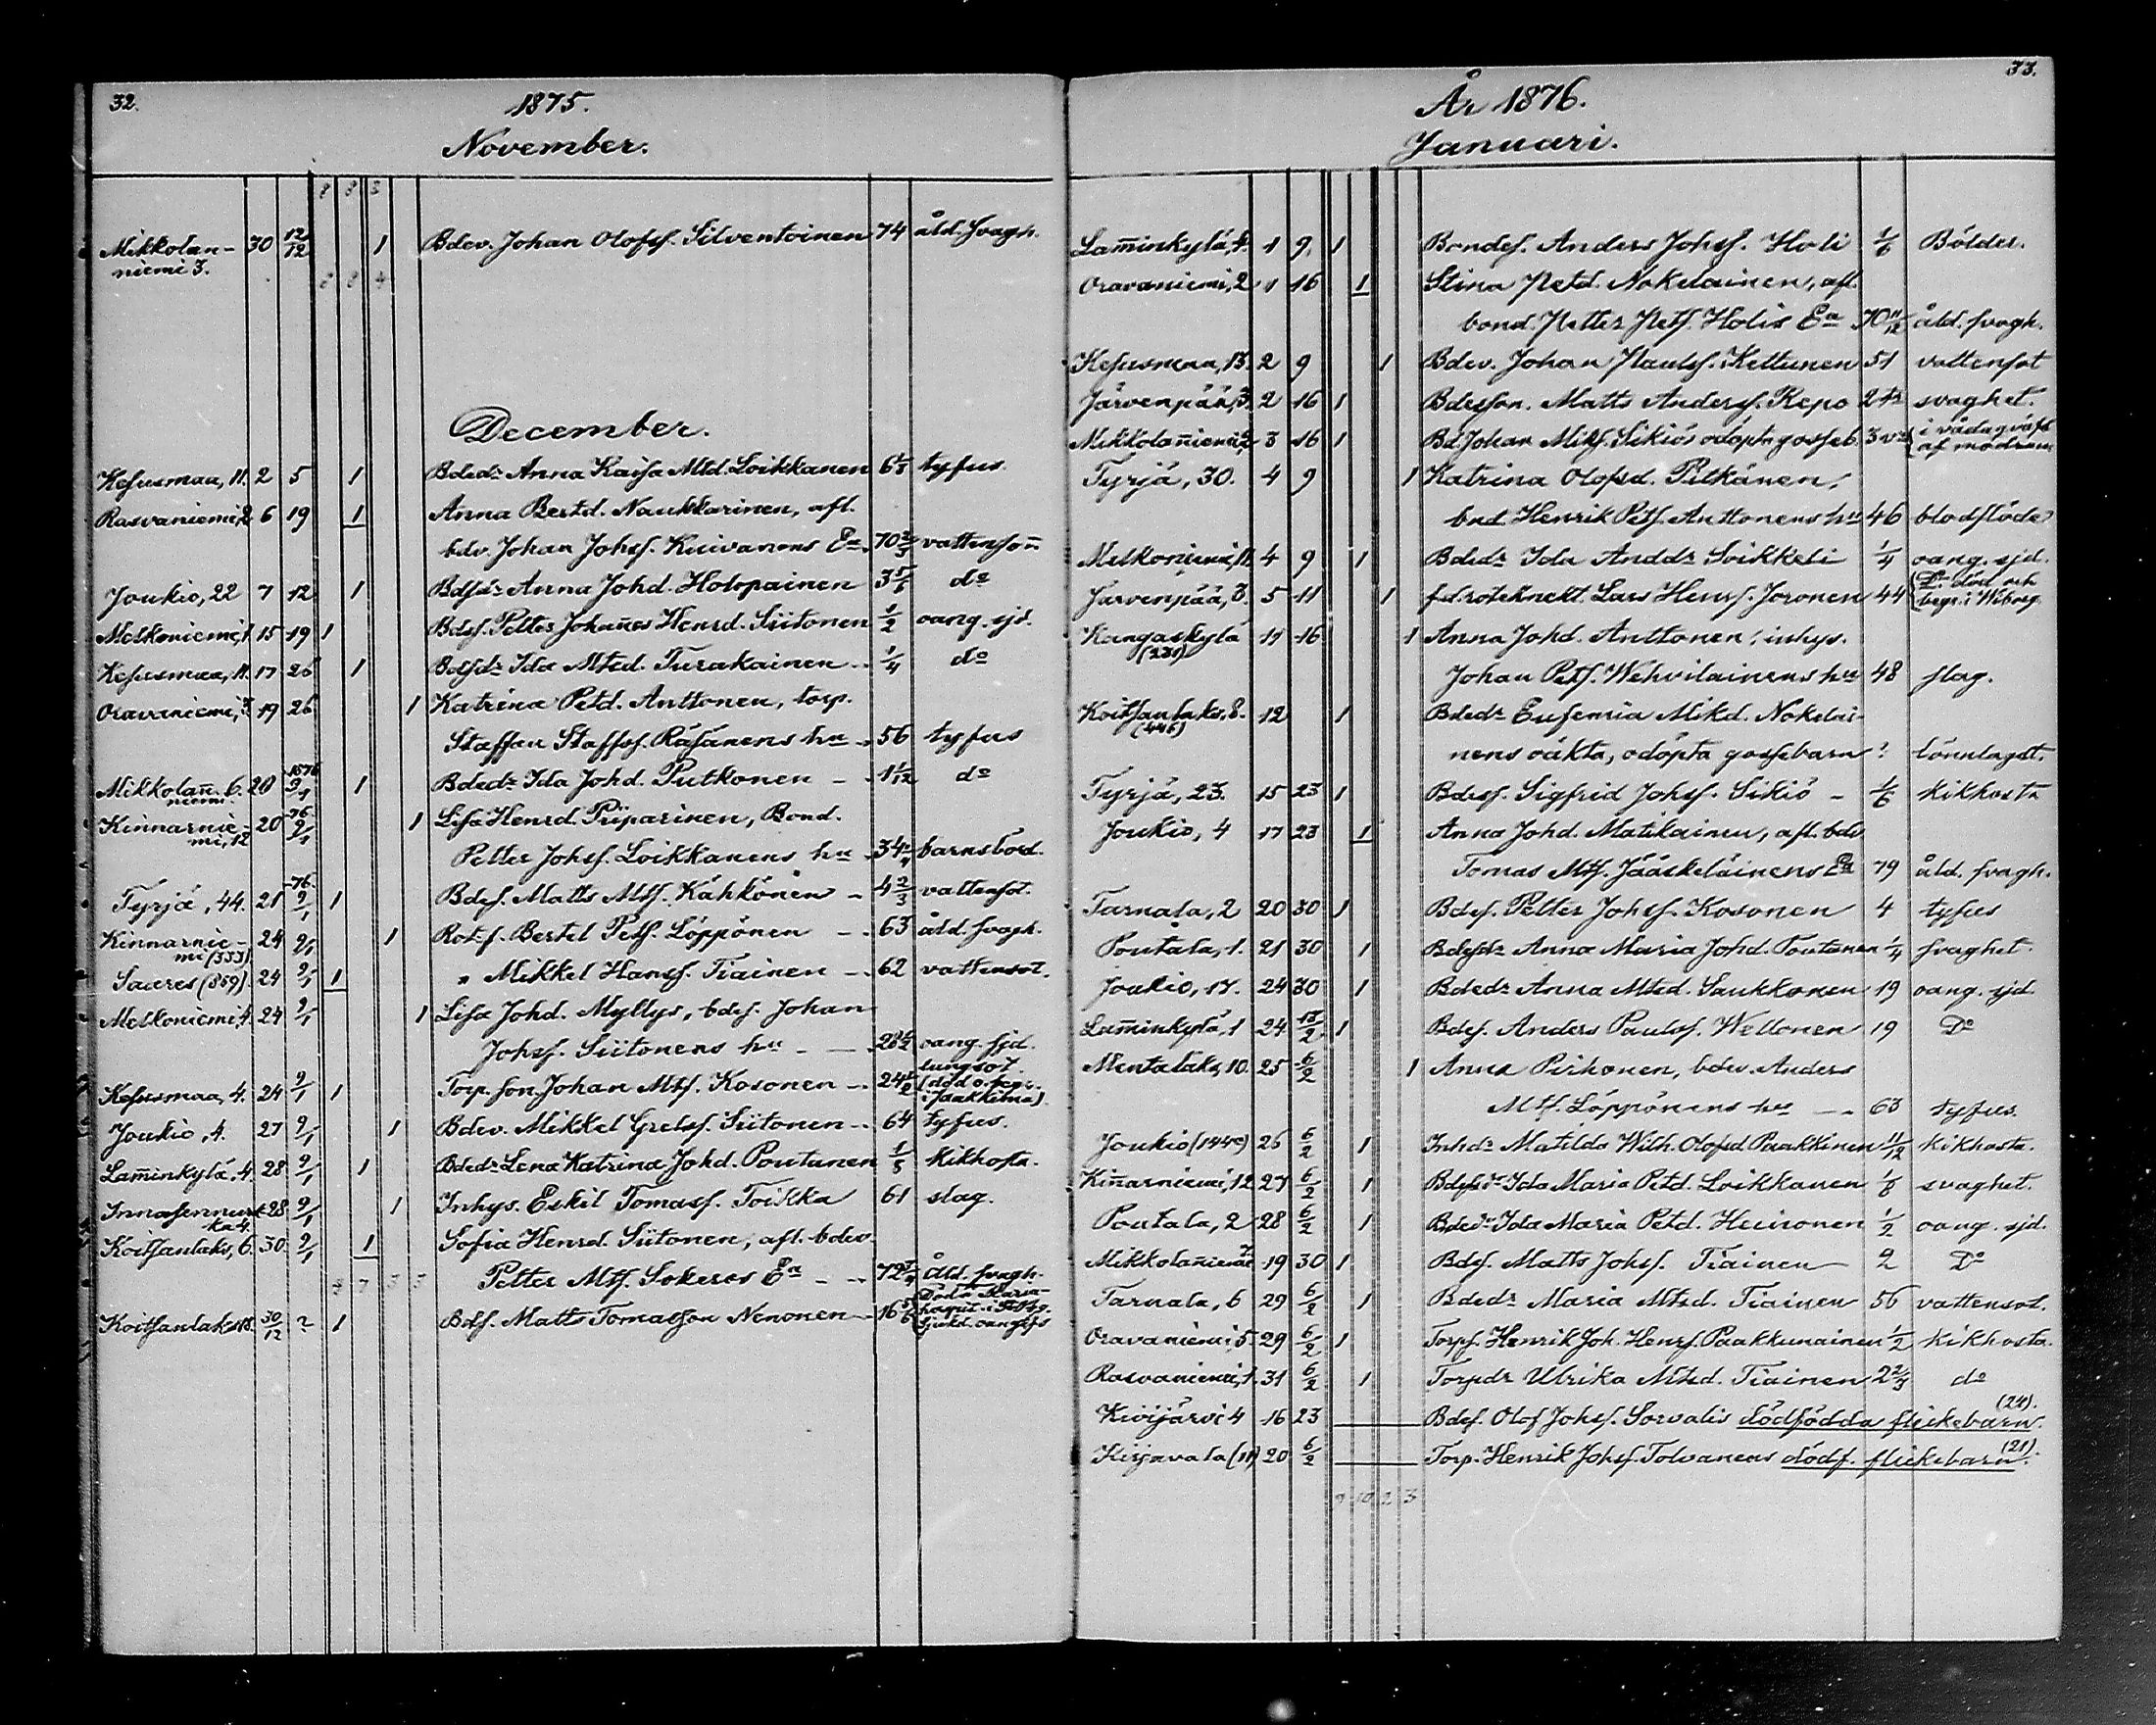 32.
1875.
November.
8 8 3
Mikkolan- 30 12/12 1 Bdev. Johan Olofss. Silventoinen 74 åld. svagh.
niemi 3.
8 8 4
December.
Kesusmaa, 11. 2 5 1 Bdedr Anna Kaisa Mtd. Loikkanen 6 1/3 tyfus.
Rasvaniemi, 2 6 19 1 Anna Bertd. Naukkarinen, afl.
bdv. Johan Johsf. Kuivanens Ea 70 2/3 vattenson
Joukio, 22 7 12 1 Bdsdr Anna Johd. Holopainen 3 5/6 do
Melkoniemi, 1. 15 19 1 Bdsf. Petter Johañes Henrd. Siitonen 1/2 oang. sjd.
Kesusmaa, 11. 17 26 1 Bdsdr Ida Mtsd. Turakainen 1/4 do
Oravaniemi, 3 19 26 1 Katrina Petd. Anttonen, torp.
Staffan Staffsf. Räsänens hu 56 tyfus
Mikkolañ. 6. 20 1876 9/1 1 Bdedr Ida Johd. Putkonen 1 1/12 do
niemi.
Kinnarnie- 20 -76. 9/1 1 Lisa Henrd. Piiparinen, Bond.
mi, 12 Petter Johsf. Loikkanens hu 34 barnsbörd.
Tyrjä, 44. 21 -76. 9/1 1 Bdsf. Matts Mtsf. Kähkönen 4 2/3 vattensot.
Kinnarnie- 24 9/1 1 Rotsf. Bertel Petsf. Löppönen 63 åld. svagh.
mi (333)
Saares (859). 24 9/1 1 " Mikkel Hansf. Tiainen 62 vattensot.
Melkoniemi, 4. 24 9/1 1 Lisa Johd. Myllys, bdsf. Johan
Johsf. Siitonens hu 26 1/2 oang. sjd.
Kesusmaa, 4. 24 9/1 1 Torp. son Johan Mtsf. Kosonen 24 lungsot. (död o. begr. i Jaakkima).
Joukio, 4. 27 9/1 1 Bdev. Mikkel Grelsf. Siitonen 64 tyfus.
Lam̃inkylä, 4. 28 9/1 1 Bdedr Lena Katrina Johd. Poutanen 1/5 kikhosta.
Innasennurk- 28 9/1 1 Inhys. Eskil Tomasf. Toikka 61 slag.
ka 4.
Koitsanlaks, 6. 30. 9/1 1 Sofia Henrd. Siitonen, afl. bdev
4 7 3 3 Petter Mtsf. Sokeros Ea 72 Åld. svagh.
Koitsanlaks 18. 30/12 ? 1 Bdsf. Matts Tomasson Nenonen 16 5/6
33.
År 1876.
Januari.
Lam̃inkylä, 4. 1 9. 1 Bondes. Anders Johsf. Holi 1/6 Bölder.
Oravaniemi, 2 1 16 1 Stina Petd. Nokelainen, afl.
bond. Petter Petsf. Holis Ea 70 11/12 åld. svagh.
Kesusmaa, 13. 2 9 1 Bdev. Johan Paulsf. Kettunen 51 vattensot
Järvenpää, 3. 2 16 1 Bdesson. Matts Andersf. Repo svaghet.
Mikkolañiemi, 2 3 16 1 Bd Johan Mikf. Sikiös odöpta gosseb. 3 i våda qväfd af modren
Tyrjä, 30. 4 9 1 Katrina Olofsd. Pitkänen,
bnd. Henrik Petsf. Anttonens hu 46 blodflöde
Melkoniemi, 11. 4 9 1 Bdedr Ida Anddr Soikkeli 1/4 oang. sjd.
Järvenpää, 3. 5 11 1 f.d. roteknekt. Lars Henrsf. Joronen 44 Do död och begr. i Wiborg
Kangaskylä 11 16 1 Anna Johd. Anttonen, inhys.
(231) Johan Petsf. Wehvilainens hu 48 slag.
Koitsanlaks, 8. 12 1 Bdedr Eufemia Mikd. Nokelai-
(446) nens oäkta, odöpta gossebarn ? lönnlagdt.
Tyrjä, 23. 15 23 1 Bdesf. Sigfrid Johsf. Sikiö 1/6 kikhosta
Joukio, 4 17 23 1 Anna Johd. Matikainen, afl. bdv
Tomas Mtsf. Jääskeläinens Ea 79 åld. svagh.
Tarnala, 2 20 30 1 Bdsf. Petter Johsf. Kosonen 4 tyfus
Poutala, 1. 21 30 1 Bdsdr Anna Maria Johd. Poutanen 1/4 svaghet.
Joukio, 17. 24 30 1 Bdedr Anna Mtsd. Saukkonen 19 oang. sjd.
Lam̃inkylä, 1 24 13/2 1 Bdsf. Anders Paulsf. Wellonen 19 Do
Mentalaks, 10. 25 6/2 1 Anna Pirhonen, bdev. Anders
Mtsf. Löppönens hu 63 tyfus.
Joukio (144c) 26 6/2 1 Inhdr Matilda Wilh. Olofsd Paakkinen 11/12 kikhosta.
Kiñarniemi, 12 27 6/2 1 Bdsdr Ida Maria Petd. Loikkanen 1/8 svaghet.
Poutala, 2 28 6/2 1 Bdedr Ida Maria Petd. Huinonen 1/2 oang. sjd.
Mikkolañiemi 7. 19 30 1 Bdsf. Matts Johsf. Tiainen 2 Do
Tarnala, 6 29 6/2 1 Bdedr Maria Mtsd. Tiainen 56 vattensot.
Oravaniemi, 5. 29 6/2 1 Torpf. Henrik Joh. Henrsf. Paakkunainen 1/2 kikhosta.
Rasvaniemi, 1. 31 6/2 1 Torpdr Ulrika Mtsd. Tiainen 2 2/3 do
Kivijärvi 4 16 23 Bdsf. Olof Johsf. Sorvalis dödfödda flickebarn. (24).
Kirjavala (11) 20 6/2 Torp. Henrik Johsf. Tolvanens dödf. flickebarn. (21).
9 10 2 3